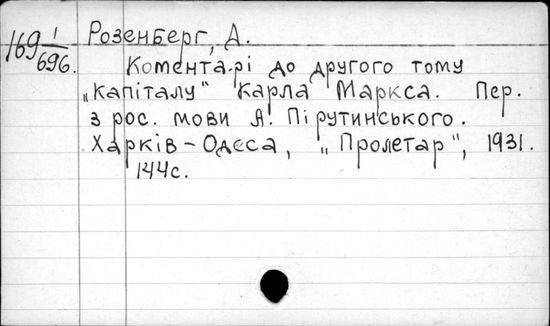 169 1/696. Розенберг, Д.
Коментарі до другого тому
„Капіталу" Карла Маркса. Пер.
з рос. мови А. Пірутинського.
Харків – Одеса, „Пролетар", 1931.
144с.